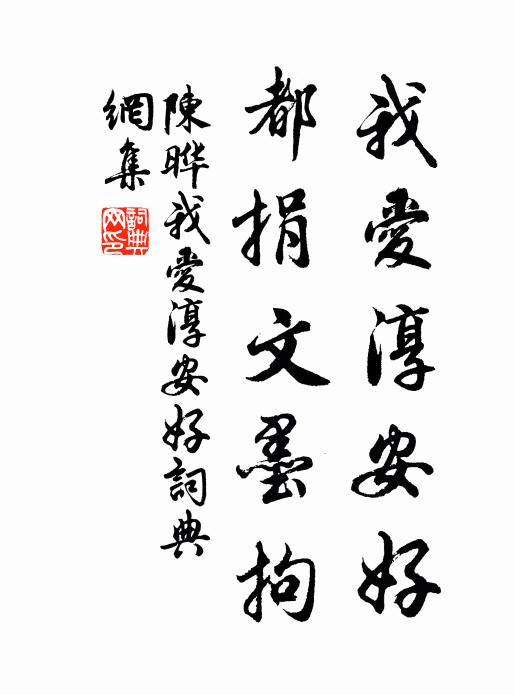 我愛淳安好
都捐文墨拘
陳晔我愛淳安好詞典
網集
詞典網印